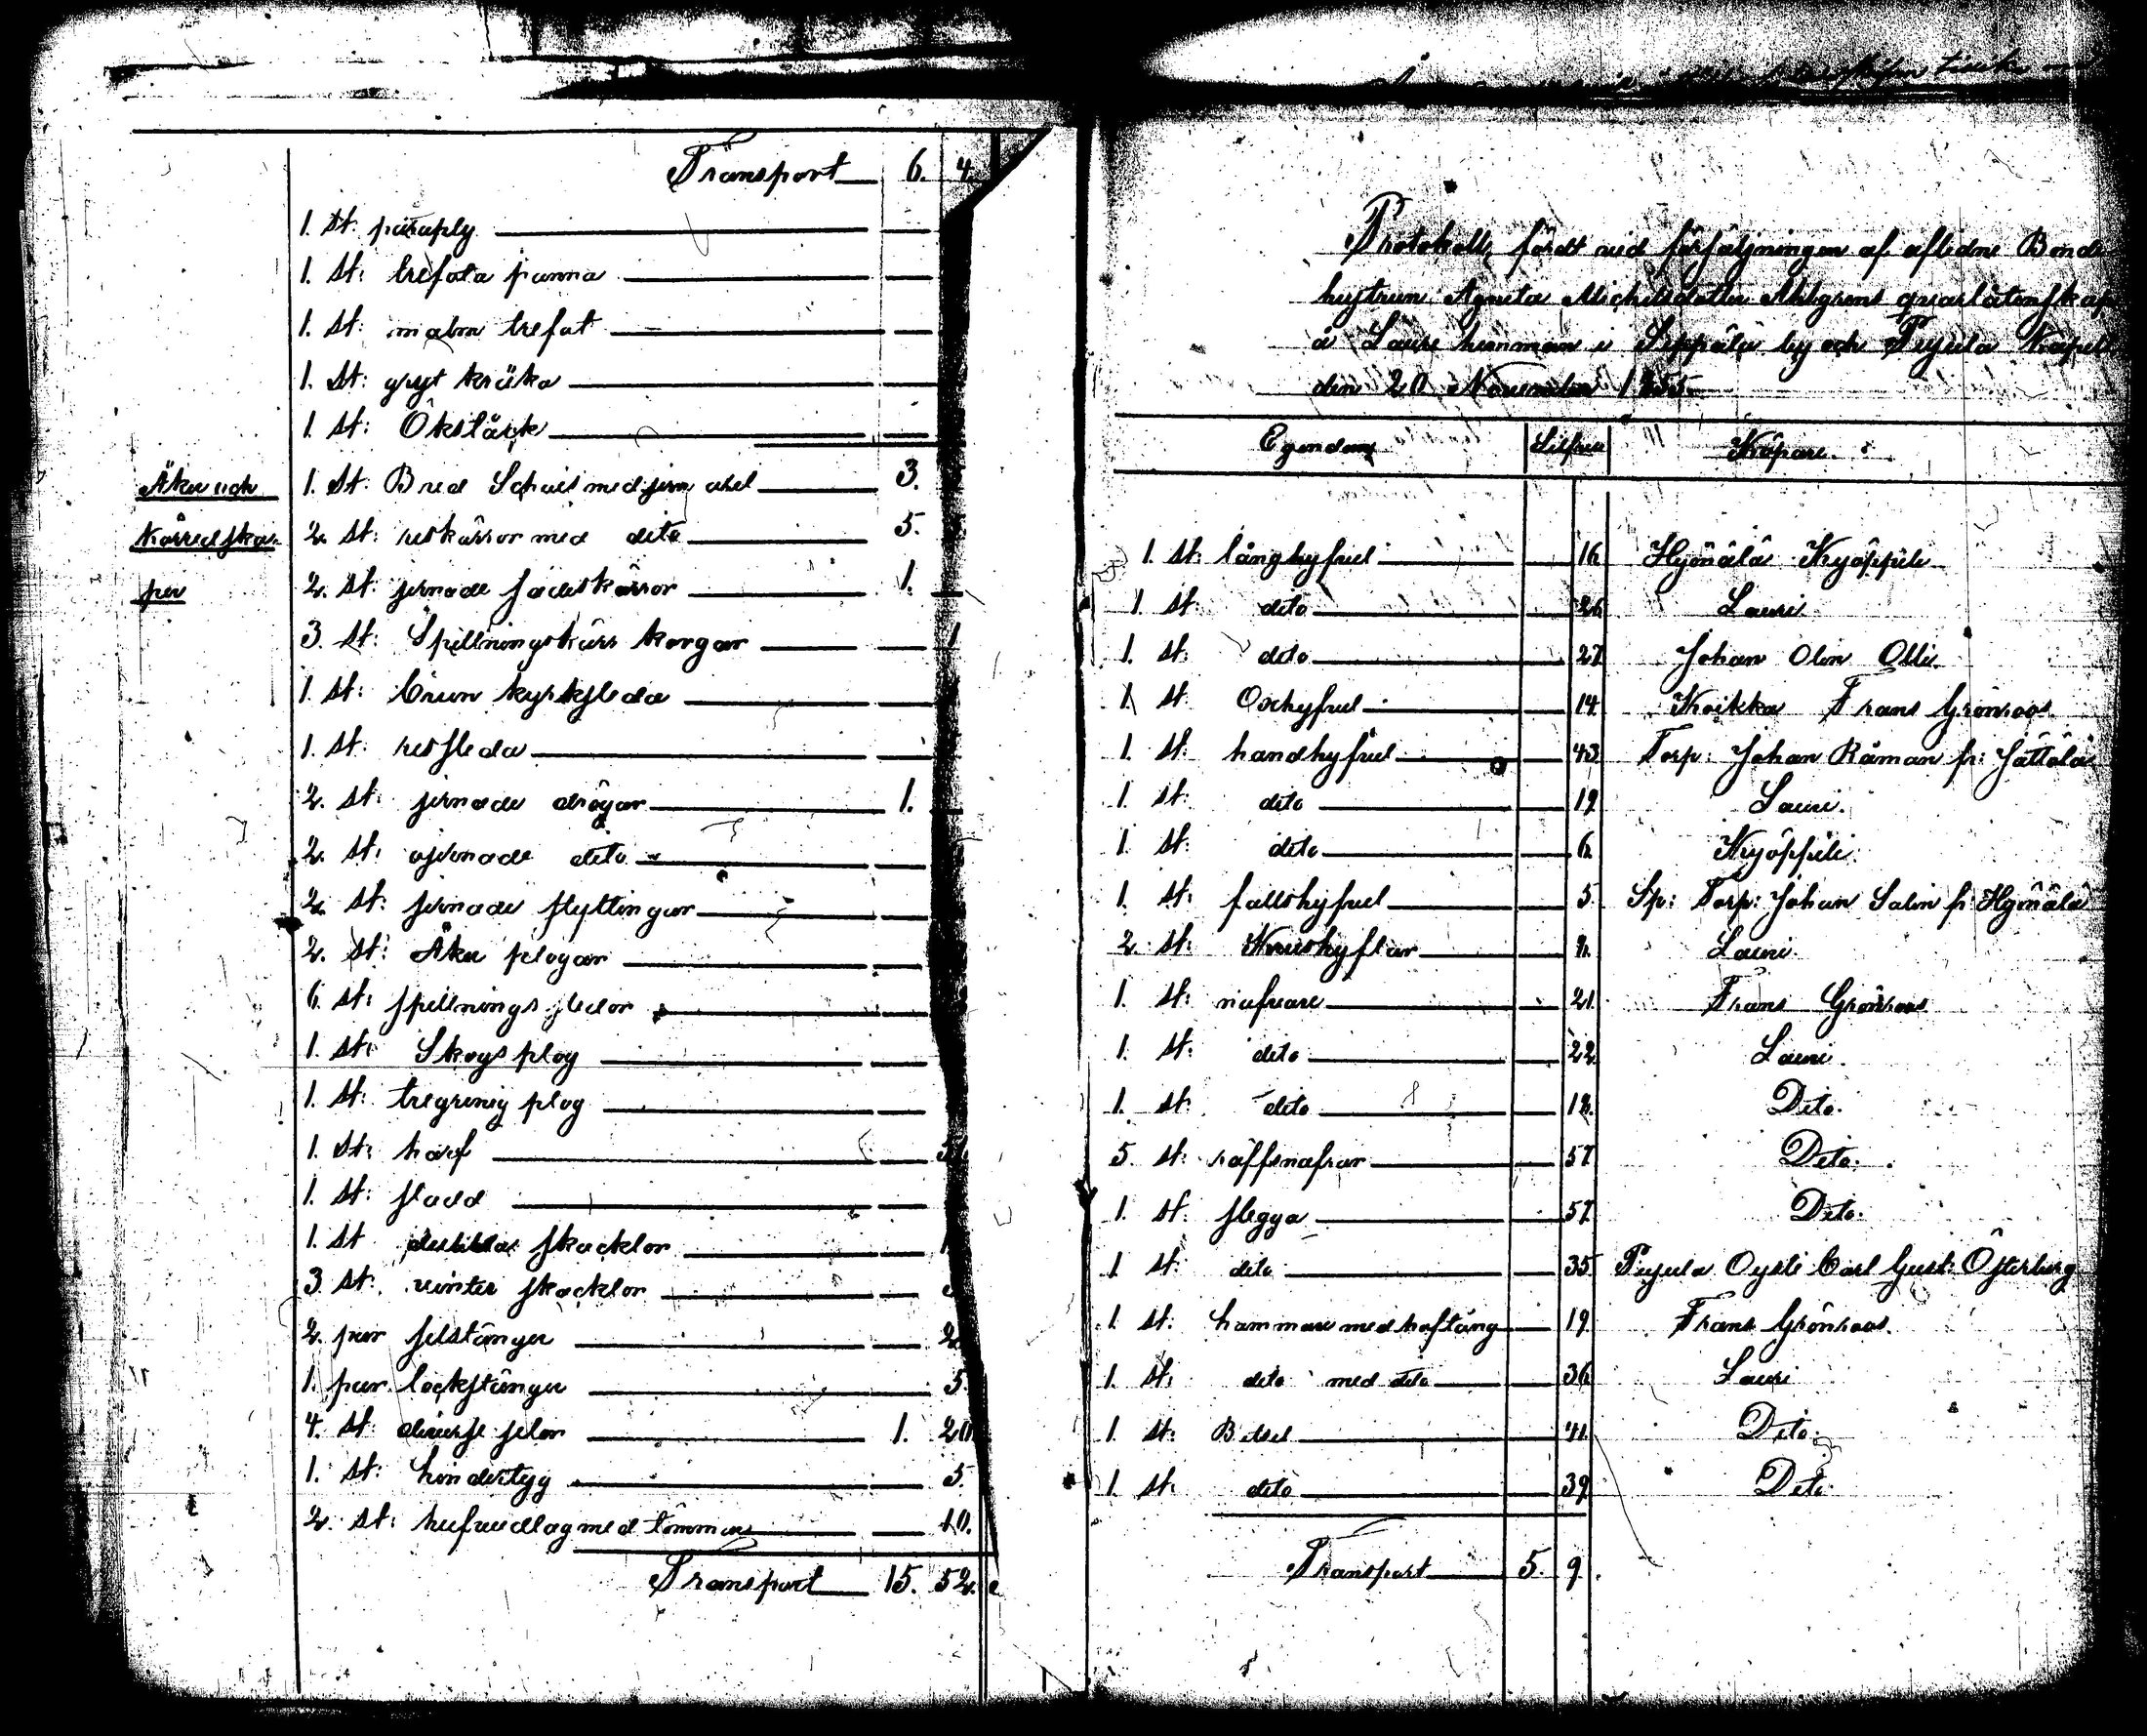 Transport 6. 4.
1. St: paraply
1. St: trefota panna
1. St: malm trefot
1. St: gryt kråka
1. St: Ökstäck
Åker och 1. St. Bred Schäs med jern axel 3.
Körredska- 2. St: reskärror med dito 5.
per 2. St: jernade gödskärror 1.
3. St: Spillningskärrs korgar 1
1. St: brun kyrksleda
1. St: ressleda
2. St: jernade drögar 1.
2. St: ojernade dito
2. St: jernade styttingar
2. St: Åker plogar
6. St: spillnings sledor
1. St: Skogs plog
1. St: tregrenig plog
1. St: harf
1. St: sladd
1. St skacklor
3. St: vinter skacklor
2. par selstänger 2
1. par lockstänger 5.
4. St: diverse selar 1. 20
1. St: hindertyg 5.
2. St: hufvudlag med tömmar 10.
Transport 15. 52.
Protokoll, fördt vid försäljningen af aflidne Bonde
hustrun Agneta Michelsdotter Ahlgrens qvarlåtenskap
å Lauri hemman i Seppälä by och Pyjula Kapell
den 20 November 1855.
Egendom Silfver Köpare.
1. St: långhyfvel 16 Hyönälä Kyöppili
1. St: dito 26 Lauri
1. St: dito 27. Johan Olin Olli
1. St: Oxhyfvel 14. Koikka Frans Grönroos
1. St: handhyfvel 43 Torp: Johan Råman fr: Jättölä
1. St: dito 19 Lauri.
1. St: dito 6. Kyöppili
1. St: falshyfvel 5 Sp: Torp: Johan Salin fr: Hyönälä
2. St: Krushyflar Lauri.
1. St: nafvare 21. Frans Grönroos
1. St: dito 22. Lauri.
1. St: dito 12. Dito.
5. St: räffsnafrar 57. Dito.
1. St: slegga 57. Dito.
1 St: dito 35. Pyjula Oysti Carl Gust: Österberg
1. St: hammare med hoftång 19. Frans Grönroos.
1. St: dito med dito 36. Lauri
1 St: Betsel 41. Dito.
1 St: dito 39. Dito.
Transport 5. 9.